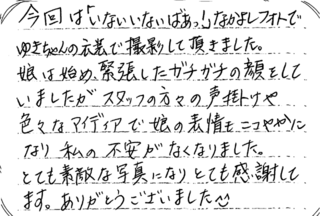 今回は「いないいないばあっ!」なかよしフォトで
ゆきちゃんの衣装で撮影して頂きました。
娘は始め、緊張したガチガチの顔をして
いましたがスタッフの方々の声掛けや
色々なアイディアで娘の表情もニコやかに
なり私の不安がなくなりました。
とても素敵な写真になりとても感謝して
ます。ありがとうございました